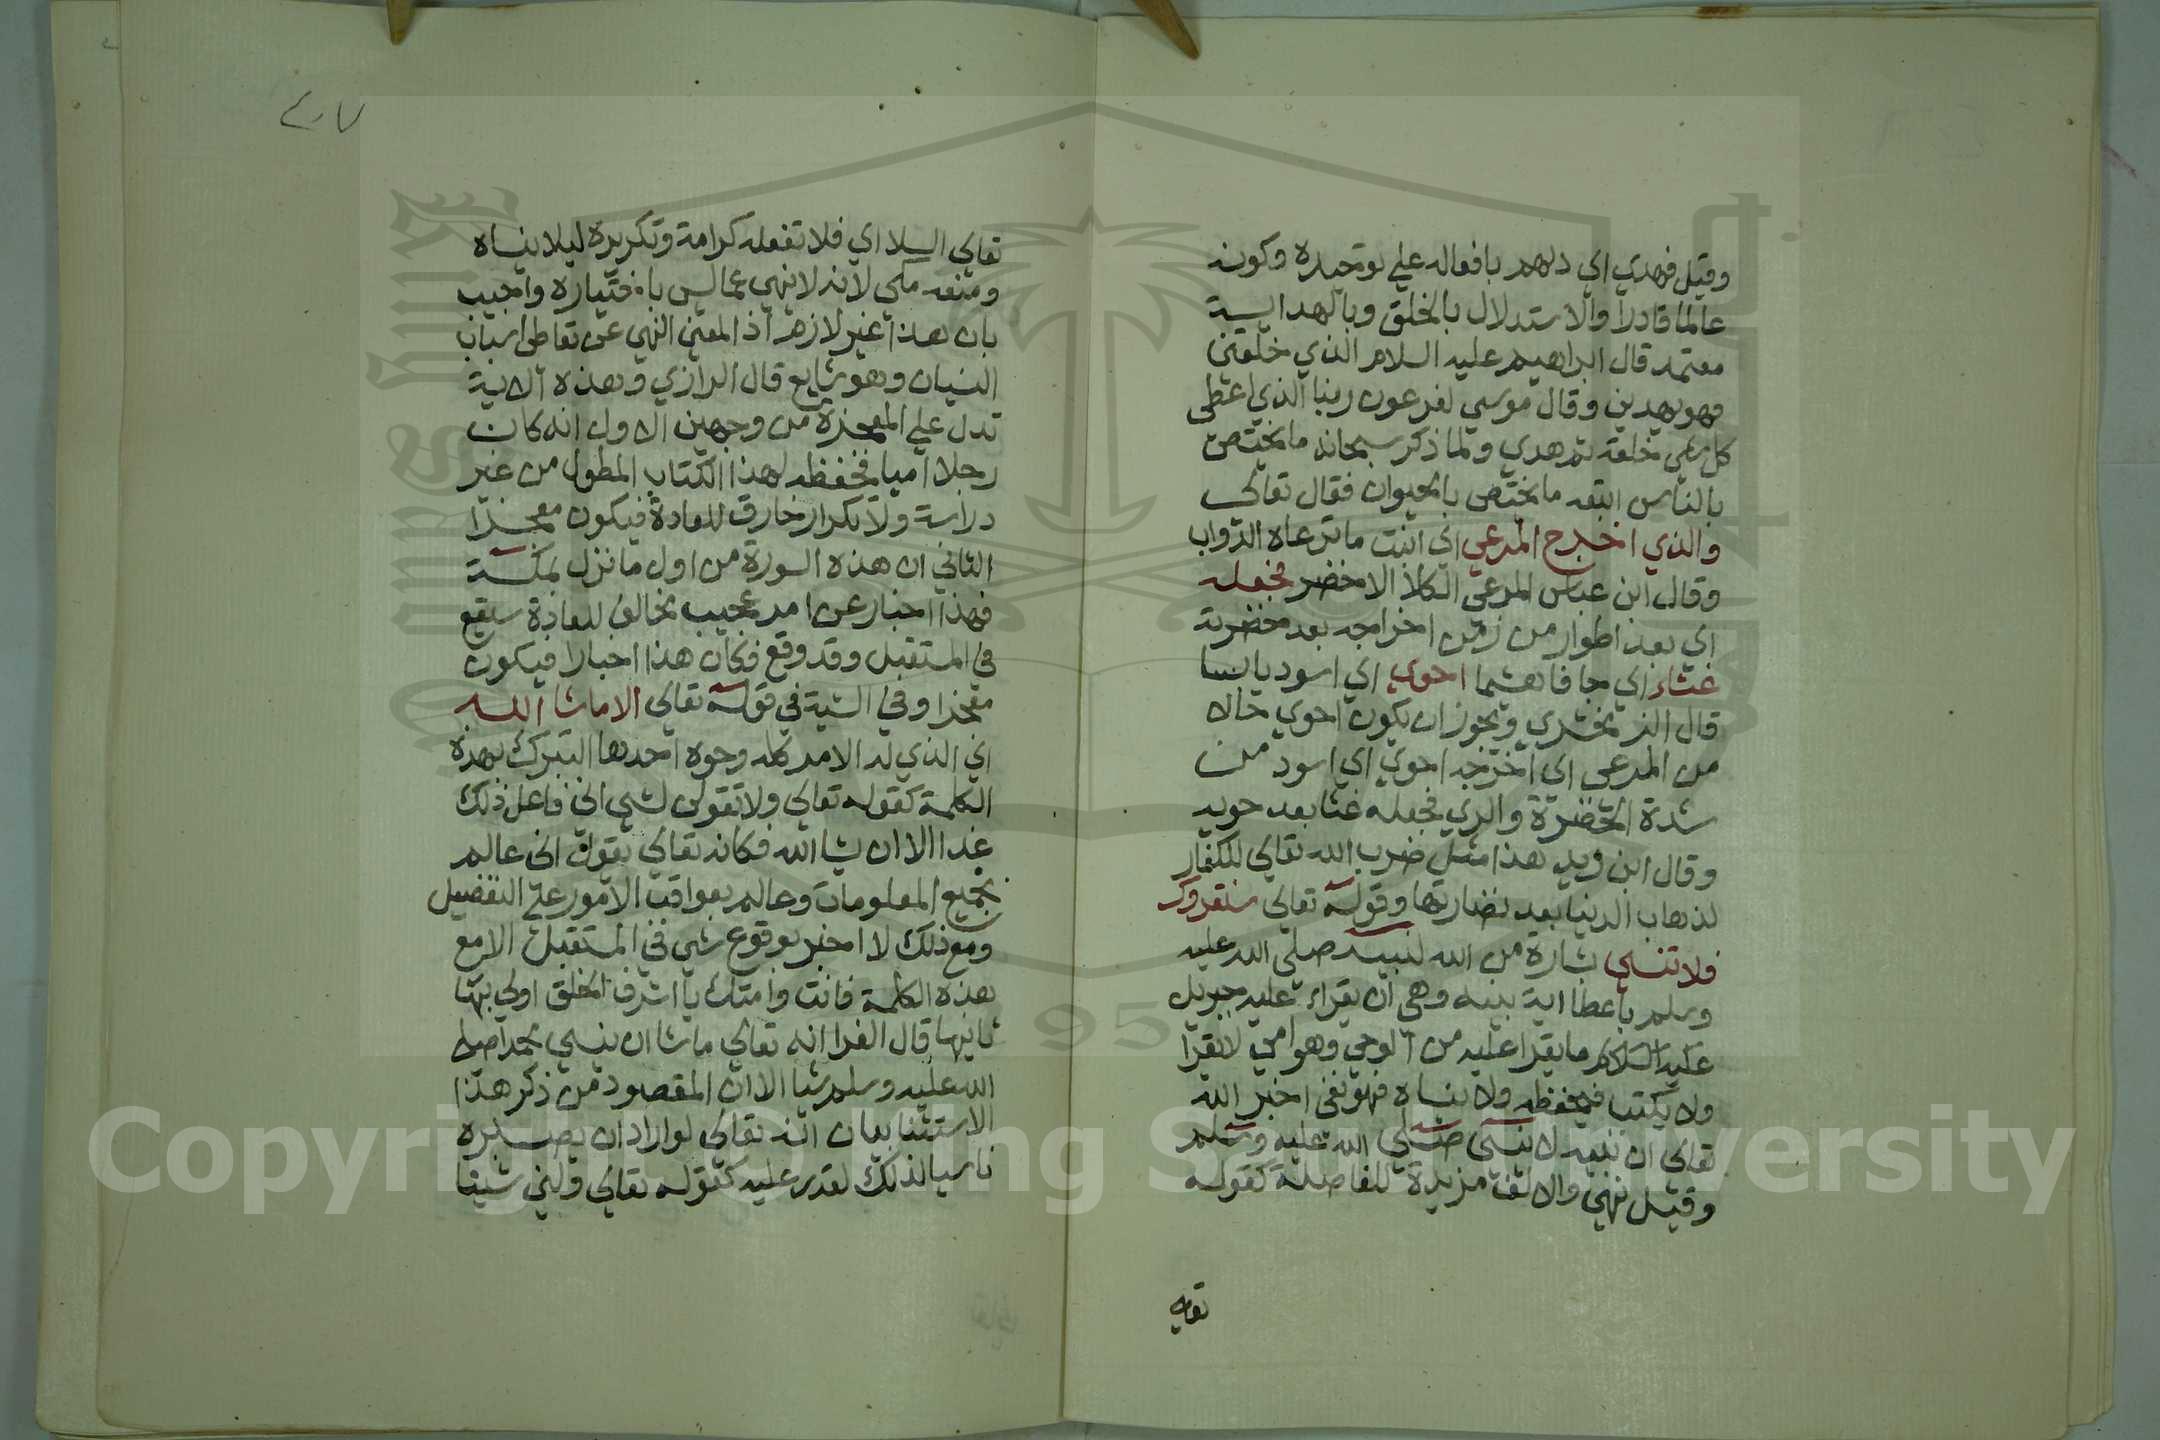 وقيل فهدي اي دلهم بافعاله علي توحيده وكونه
عالما قادرا والاستدلال بالخلق وبالهداية
معتمد قال ابراهيم عليه السلام الذي خلقني
فهو يهدين وقال موسي لفرعون ربنا الذي اعطى
كل شي خلقه ثم هدي ولما ذكر سبحانه ما يختص
بالناس اتبعه ما يختص بالحيوان فقال تعالى
والذي اخرج المرعي اي انبت ما ترعاه الدواب
وقال ابن عباس المرعي الكلأ الاخضر فجعله
اي بعد اطوار من زمن اخراجه بعد خضرته
غثاء اي جافا هشيما احوي اي اسود يابسا
قال الزمخشري ويجوز ان يكون احوي حالا
من المرعي اي اخرجه احوي اي اسود من
شدة الخضرة والري فجعله غثا بعد حويه
وقال ابن زيد هذا مثل ضربه الله تعالي للكفار
لذهاب الدنيا بعد نضارتها وقوله تعالي سنقرؤك
فلا تنسي بشارة من الله لنبيه صلي الله عليه
وسلم باعطا اية بينه وهي ان يقراء عليه جبريل
عليه السلام ما يقرا عليه من الوحي وهو امي لا يقرا
ولا يكتب فيحفظه ولا ينساه فهو نفي اخبر الله
تعالي ان نبيه لا ينسى صلي الله عليه وسلم
وقيل نهي والالف مزيدة للفاصلة كقوله
تعالي
تعالي السبلا اي فلا تفعله كرامة وتكريره ليلا ينساه
ومنعه مكي لانه لا ينهي عما ليس باختياره واجيب
بان هذا غير لازم اذ المعني النهي عن تعاطي اسباب
النسيان وهو شايع قال الرازي وهذه الاية
تدل علي المعجزة من وجهين الاول انه كان
رجلا اميا فحفظه لهذا الكتاب المطول من غير
دراسة ولا تكرار خارق للعادة فيكون معجزا
الثاني ان هذه السورة من اول ما نزل بمكة
فهذا اخبار عن امر عجيب مخالف للعادة سيقع
في المستقبل وقد وقع فكان هذا اخبارا فيكون
معجزا وفي المشية في قوله تعالي الا ما شا الله
اي الذي له الامر كله وجوه احدها التبرك بهذه
الكلمة كقوله تعالي ولا تقولن لشي اني فاعل ذلك
غدا الا ان يشا الله فكانه تعالي يقول اني عالم
بجميع المعلومات وعالم بعواقب الامور علي التفضيل
ومع ذلك لا اخبر بوقوع شي في المستقبل الا مع
هذه الكلمة فانت وامتك يا اشرف الخلق اولي بها
ثانيها قال الفرا انه تعالي ما شا ان ينسي محمد صلي
الله عليه وسلم شيا الا ان المقصود من ذكر هذا
الاستثنا بيان انه تعالي لو اراد ان يصيره
ناسيا لذلك لقدر عليه كقوله تعالي ولين شينا